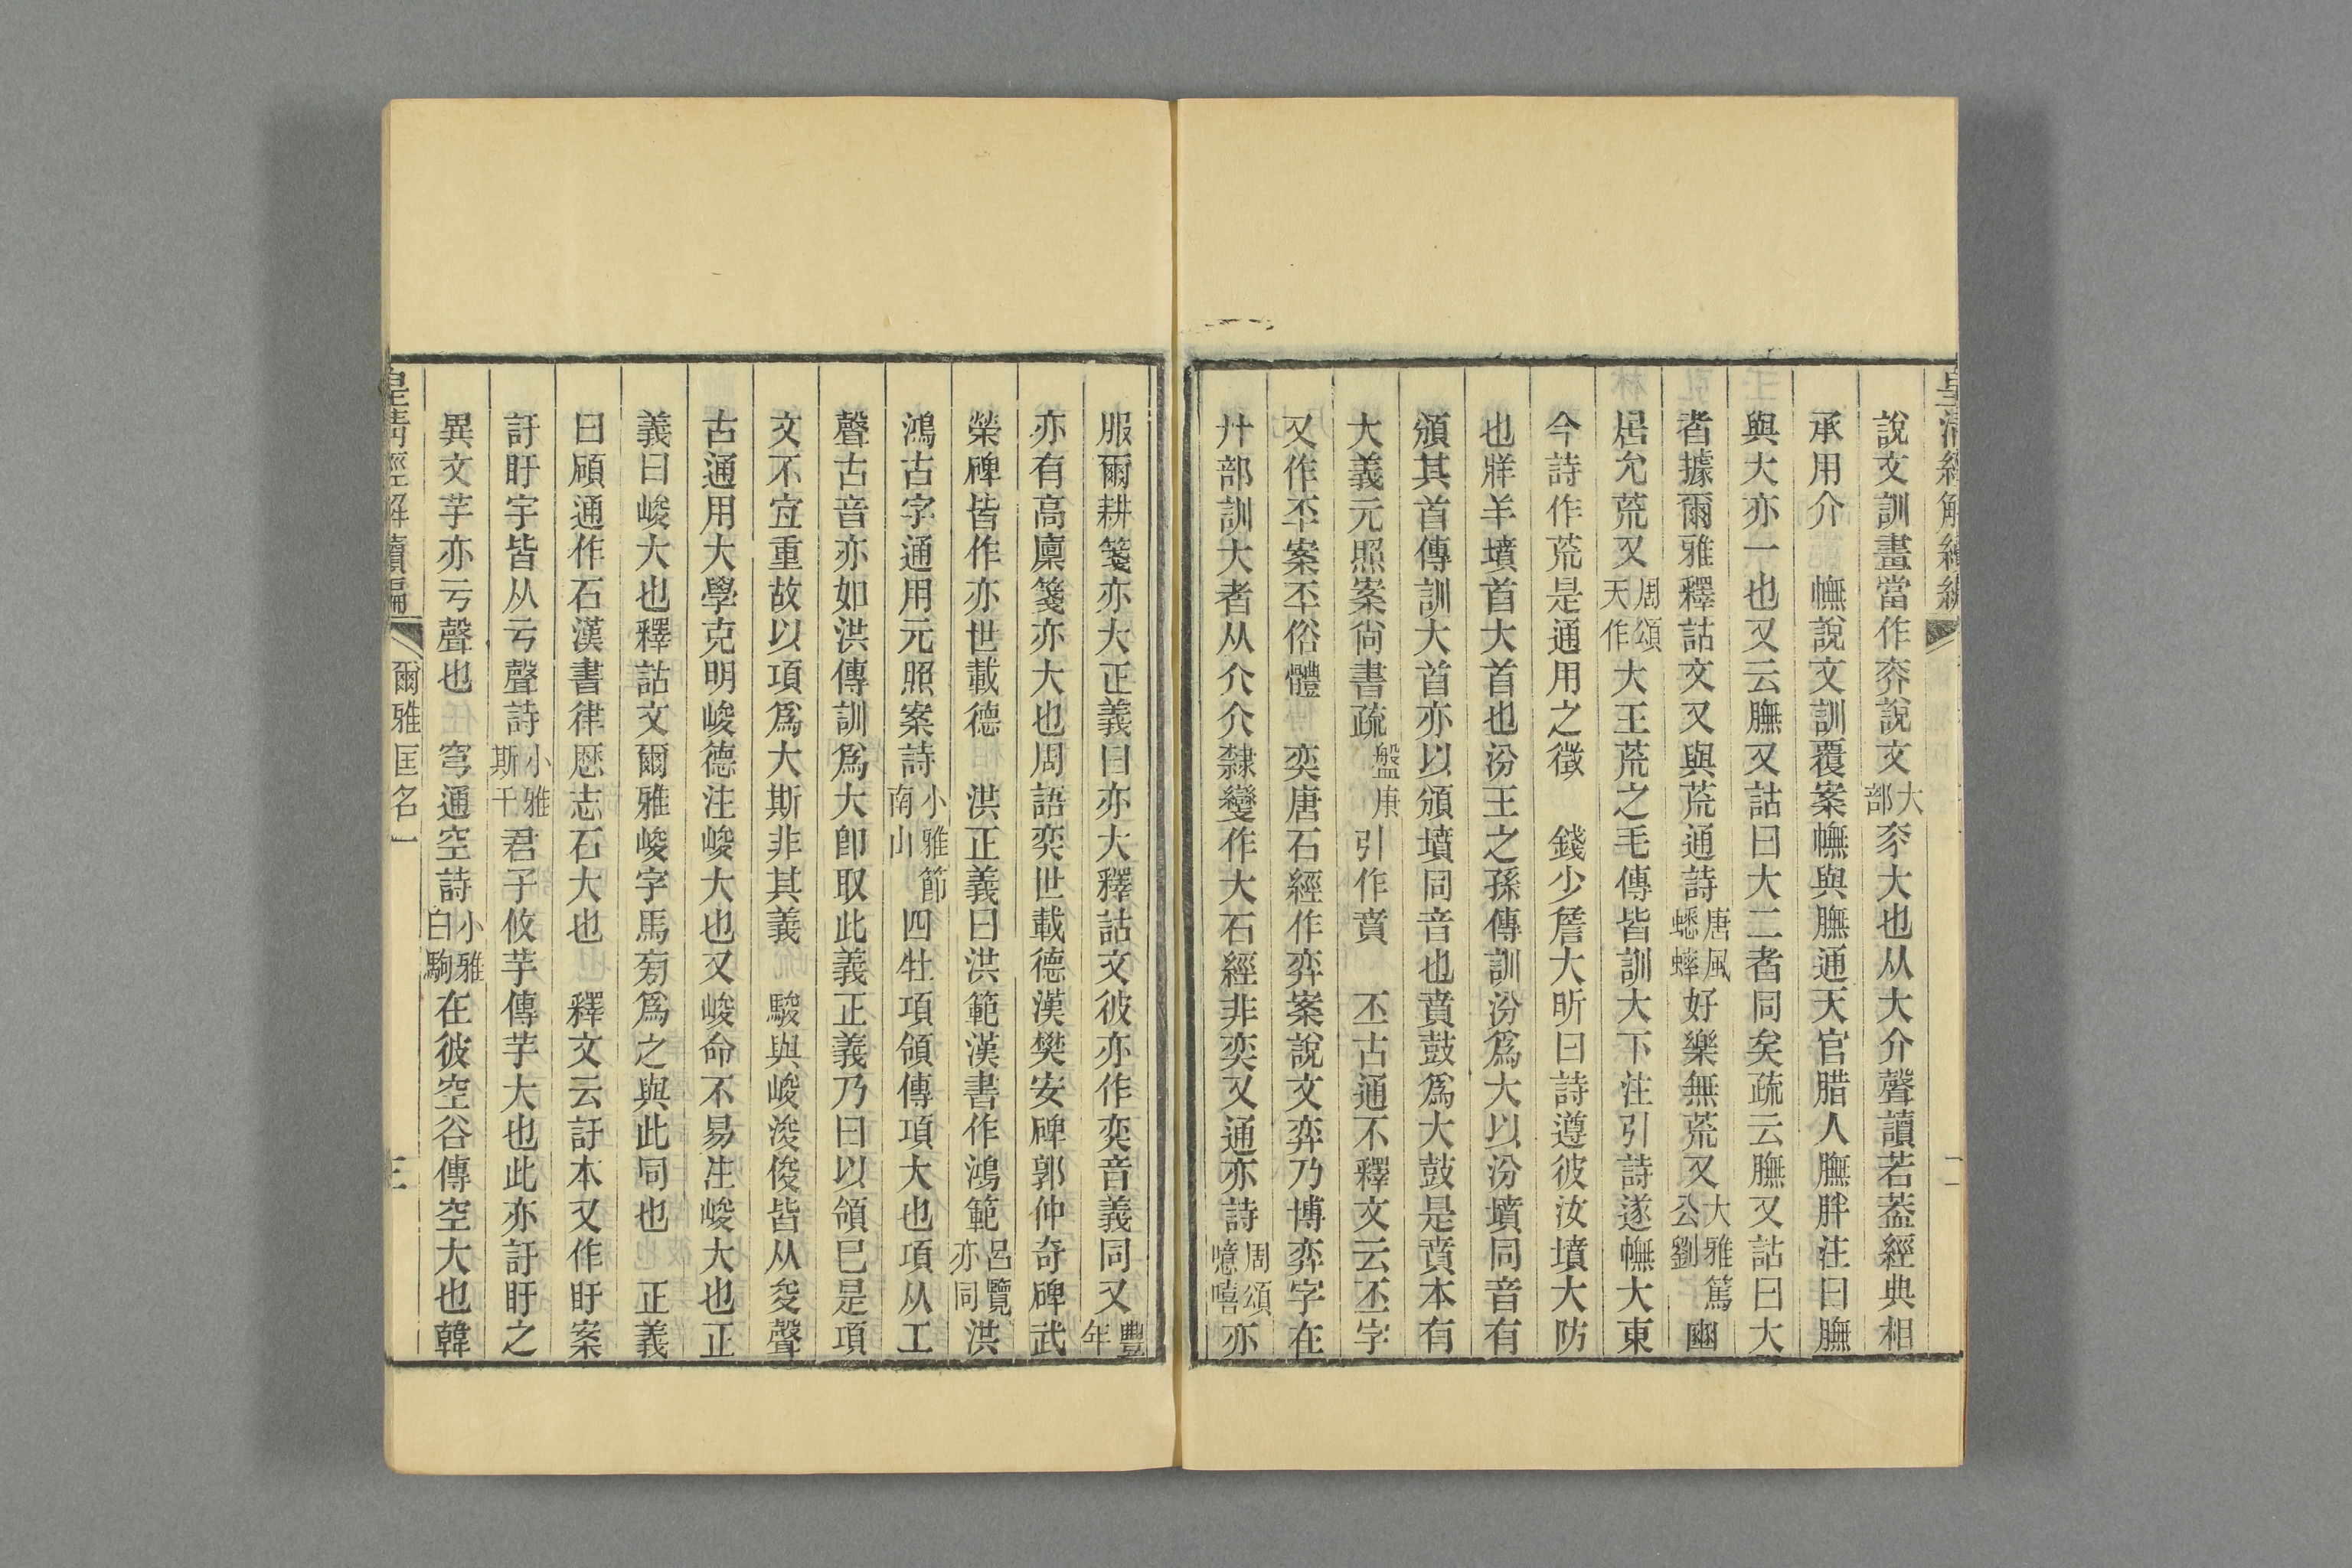 皇清經解續編
說文訓畫當作奔說文大部夰大也从大介聲讀若葢經典相
承用介　幠說文訓覆案幠與膴通天官腊人膴胖注曰膴
與大亦一也又云膴又詁曰大二者同矣疏云膴又詁曰大
者據爾雅釋詁文又與荒通詩唐風蟋蟀好樂無荒又大雅篤公劉豳
居允荒又周頌天作大王荒之毛傳皆訓大下注引詩遂幠大東
今詩作荒是通用之徵　錢少詹大昕曰詩遵彼汝墳大防
也牂羊墳首大首也汾王之孫傳訓汾爲大以汾墳同音有
頒其首傳訓大首亦以頒墳同音也賁鼓爲大鼓是賁本有
大義元照案尙書疏盤庚引作賁　丕古通不釋文云丕字
又作㔻案㔻俗體　奕唐石經作弈案說文弈乃博弈字在
廾部訓大者从亣亣隸變作大石經非奕又通亦詩周頌噫嘻亦
服爾耕箋亦大正義曰亦大釋詁文彼亦作奕音義同又豐年
亦有高廩箋亦大也周語奕世載德漢樊安碑郭仲奇碑武
榮碑皆作亦世載德　洪正義曰洪範漢書作鴻範呂覽亦同洪
鴻古字通用元照案詩小雅節南山四牡項領傳項大也項从工
聲古音亦如洪傳訓爲大卽取此義正義乃曰以領已是項
文不宜重故以項爲大斯非其義　駿與峻浚俊皆从夋聲
古通用大學克明峻德注峻大也又峻命不易注峻大也正
義曰峻大也釋詁文爾雅峻字馬旁爲之與此同也　正義
曰碩通作石漢書律厯志石大也　釋文云訏本又作盱案
訏盱宇皆从亏聲詩小雅斯干君子攸芋傳芋大也此亦訏盱之
異文芋亦亏聲也　穹通空詩小雅白駒在彼空谷傳空大也韓
皇清經解續編　爾雅匡名一　三